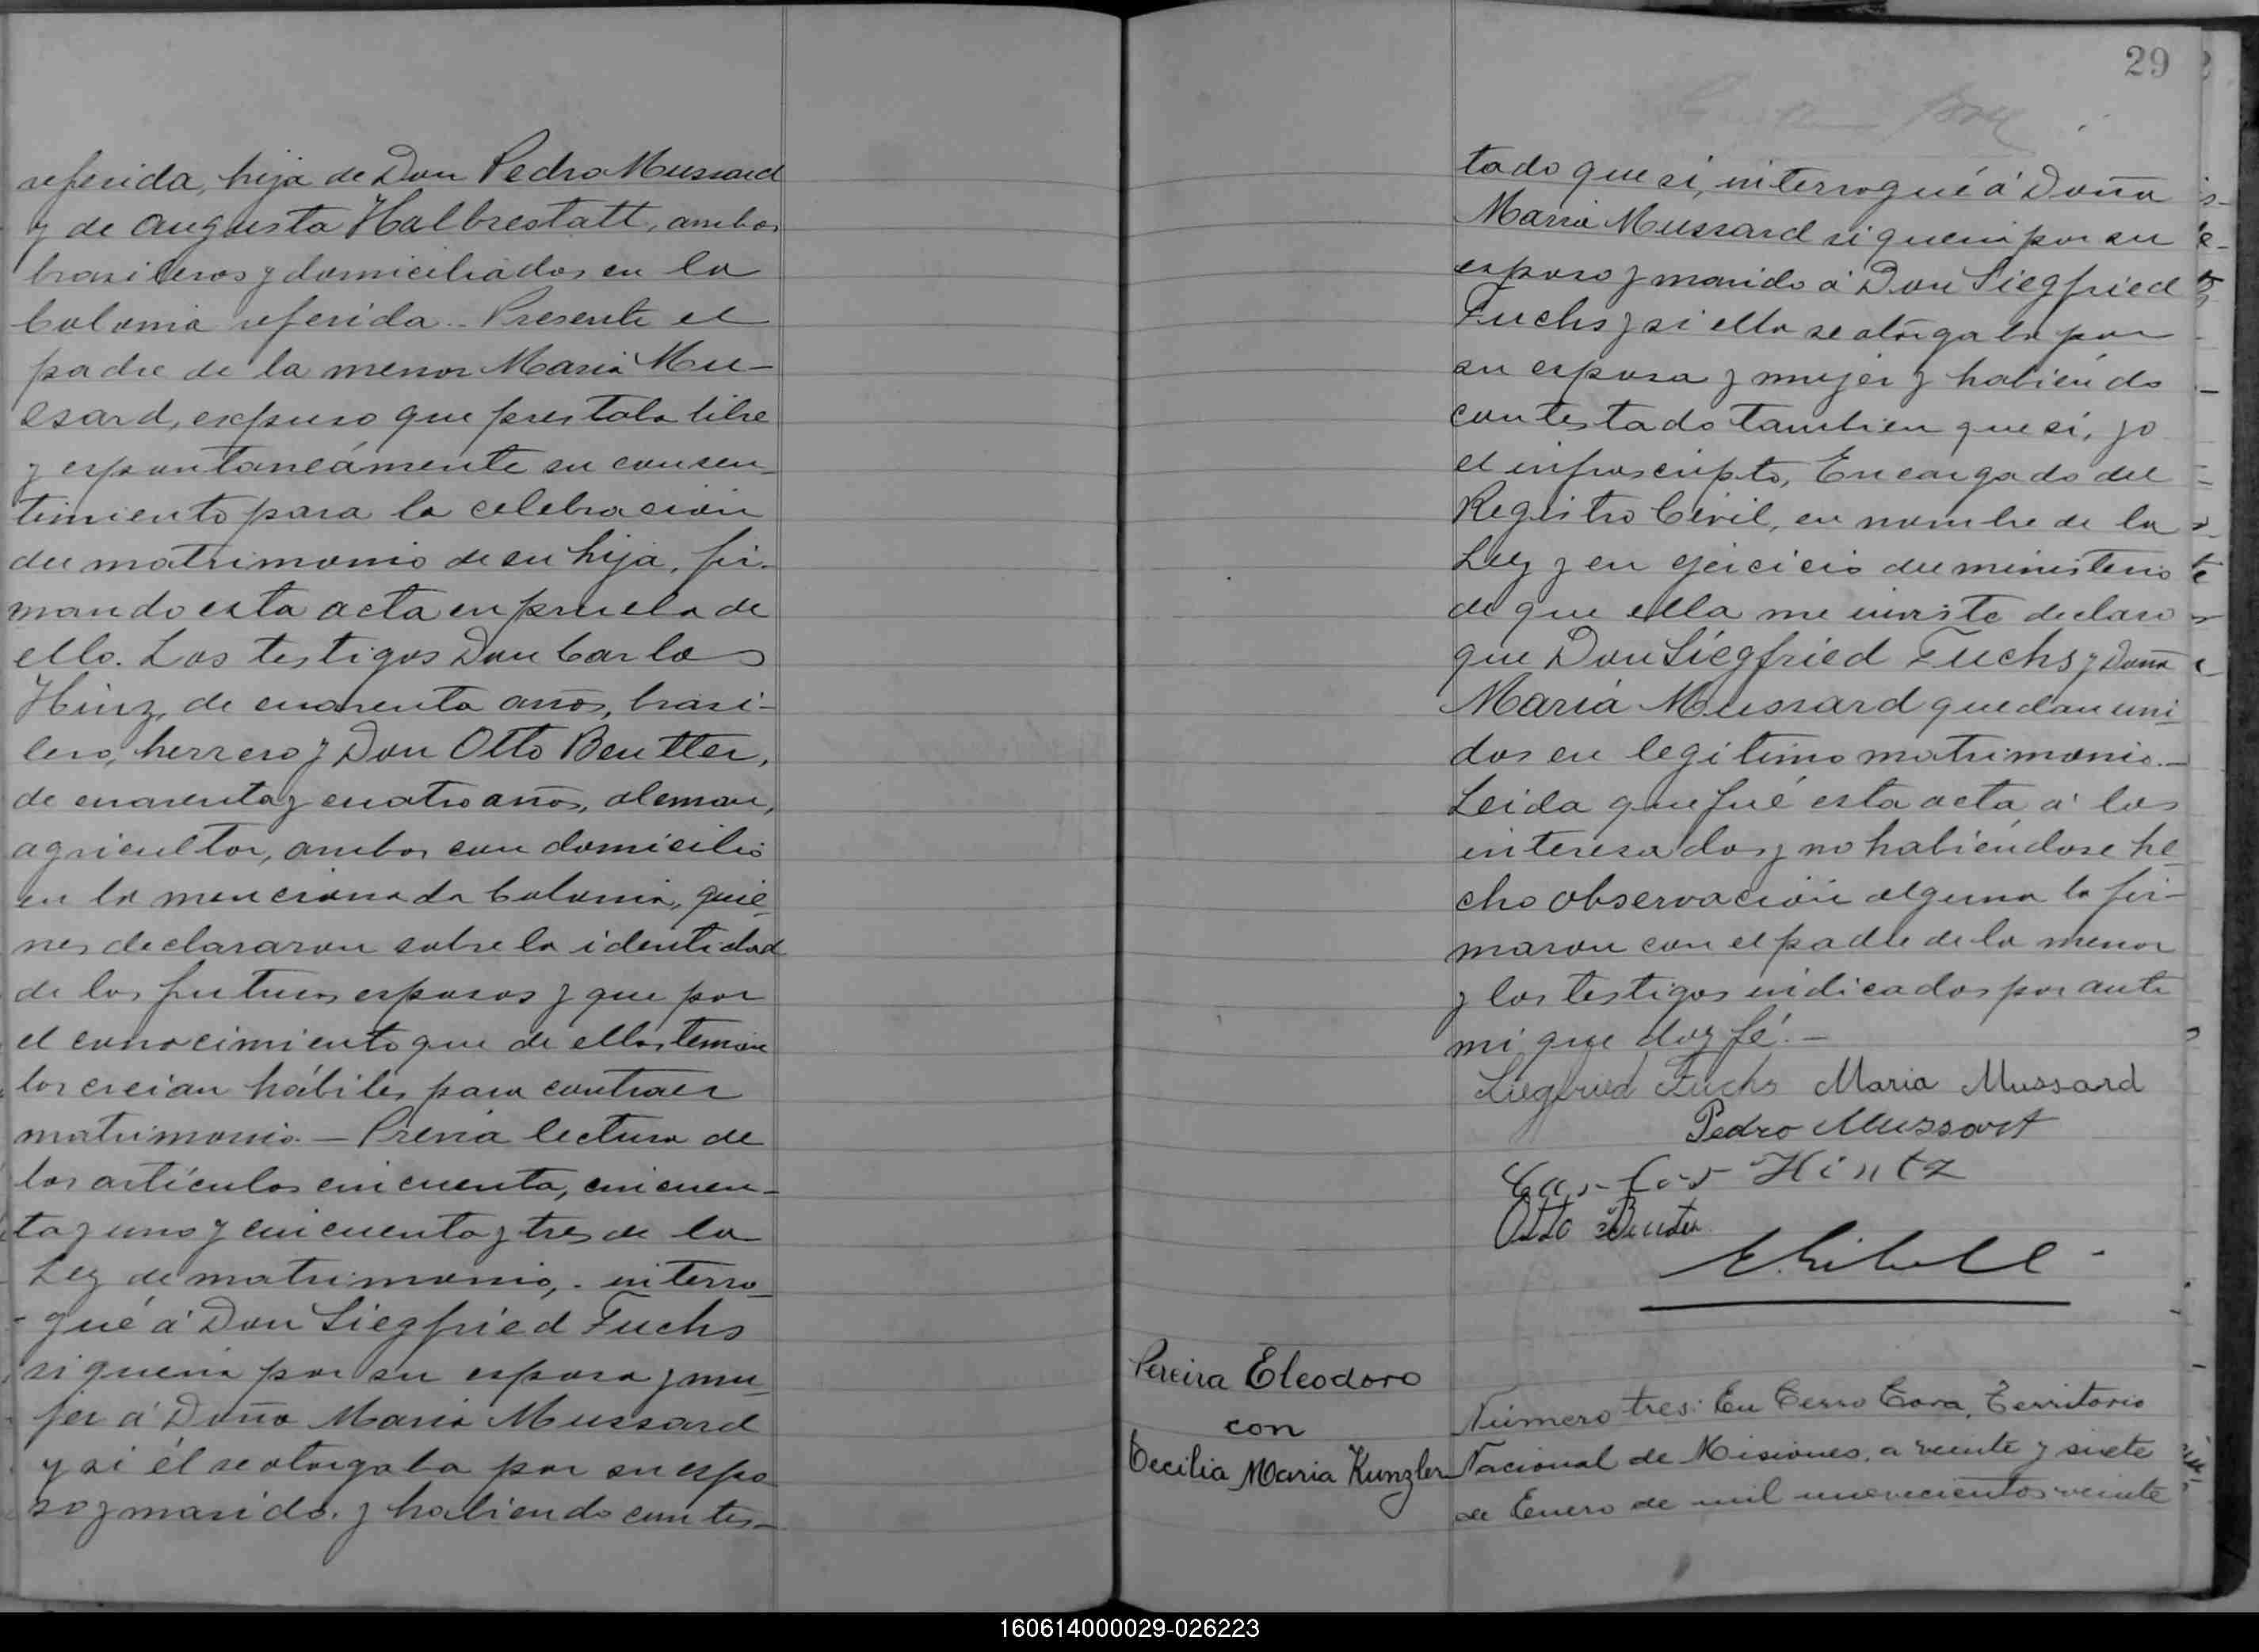 referida, hija de Don Pedro Mussard
y de Augusta Halbrestatt, ambos
brasileros y domiciliados en la
Colonia referida.. Presente el
padre de la menor Maria Mu-
ssard, expuso que prestaba libre
y espontaneámente su consen-
timiento para la celebración
del matrimonio de su hija, fir-
mando esta acta en prueba de
ello. Los testigos Don Carlos
Hinz, de cuarenta años, brasi-
lero, herrero y Don Otto Beutter,
de cuarenta y cuatro años, aleman,
agricultor, ambos con domicilio
en la mencionada Colonia, quie-
nes declararon sobre la identidad
de los futuros esposos y que por
el conocimiento que de ellos tenian
los creian hábiles para contraer
matrimonio. — Prévia lectura de
los artículos cincuenta, cincuen-
ta y uno y cincuenta y tres de la
Ley de matrimonio, . interro-
gué á Don Siegfried Fuchs
si queria por su esposa y mu-
jer á Doña Maria Mussard
y si él se otorgaba por su espo
so y marido. y habiendo contes-
29
tado que si, interrogué á Doña
Maria Mussard si queria por su
esposo y marido á Don Siegfried
Fuchs y si ella se otorgaba por
su esposa y mujer y habiendo
contestado tambien que si, yo
el infrascripto, Encargado del
Registro Civil, en nombre de la
Ley y en ejercicio del ministerio
de que ella me inviste declaro
que Don Siegfried Fuchs y Doña
Maria Mussard quedan uni-
dos en legitimo matrimonio.—
Leida que fué esta acta á los
interesados y no habiéndose he-
cho observación alguna la fir-
maron con el padre de la menor
y los testigos indicados por ante
mi que doy fé. —
Siegfried Fuchs Maria Mussard
Pedro Mussart
Carlos Hintz
Otto Beutter
Pereira Eleodoro
con
Cecilia Maria Kunzler
Número tres: En Cerro Cora, Territorio
Nacional de Misiones, a veinte y siete
de Enero de mil novecientos veinte
160614000029-026223